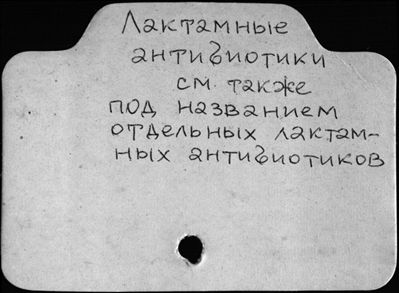 Лактамные
антибиотики
см. также
под названием
отдельных лактам-
ных антибиотиков